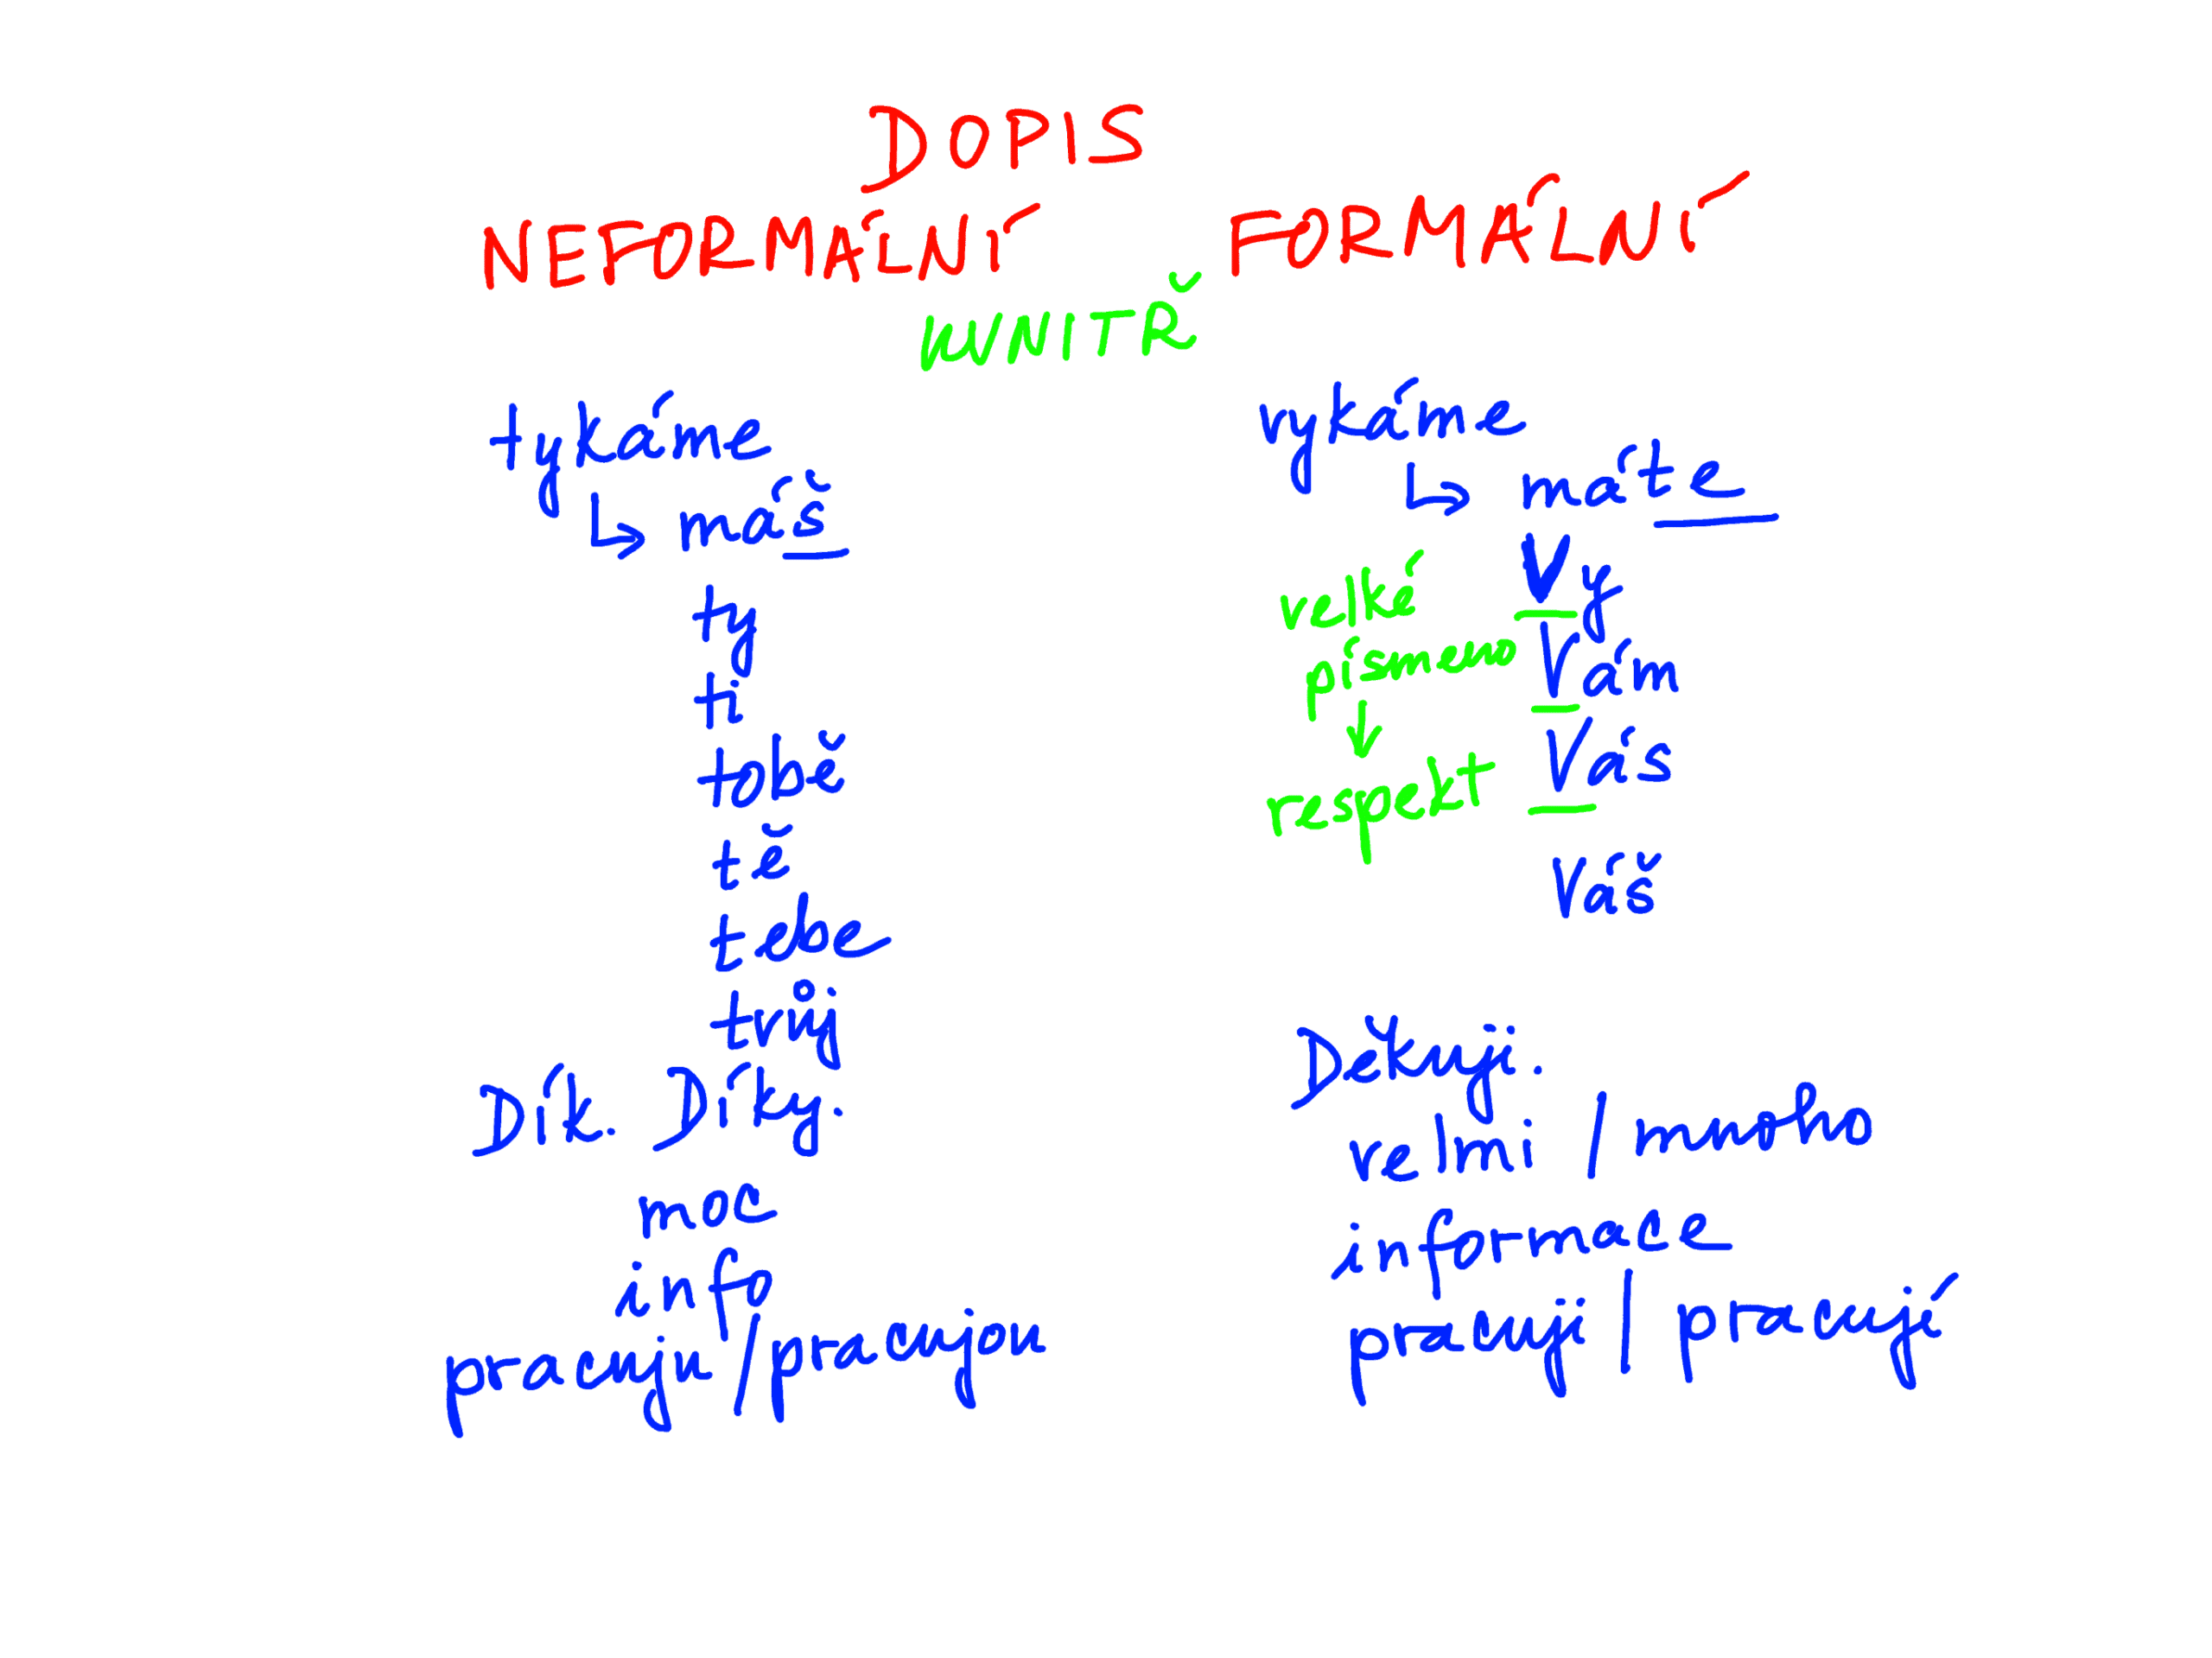 DOPIS
NEFORMÁLNÍ
FORMÁLNÍ
UVNITŘ
tykáme
↳ máš
ty
ti
tobě
tě
tebe
tvůj
Dík. Díky.
moc
info
pracuju / pracujou
vykáme
↳ máte
velké
písmeno
↓
respekt
Vy
Vám
Vás
Váš
Děkuji.
velmi / mnoho
informace
pracuji / pracují